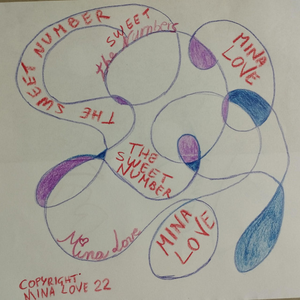 THE SWEET NUMBER
SWEET
the Numbers
MINA
LOVE
THE
SWEET
NUMBER
Mina Love
MINA
LOVE
COPYRIGHT:
MINA LOVE 22